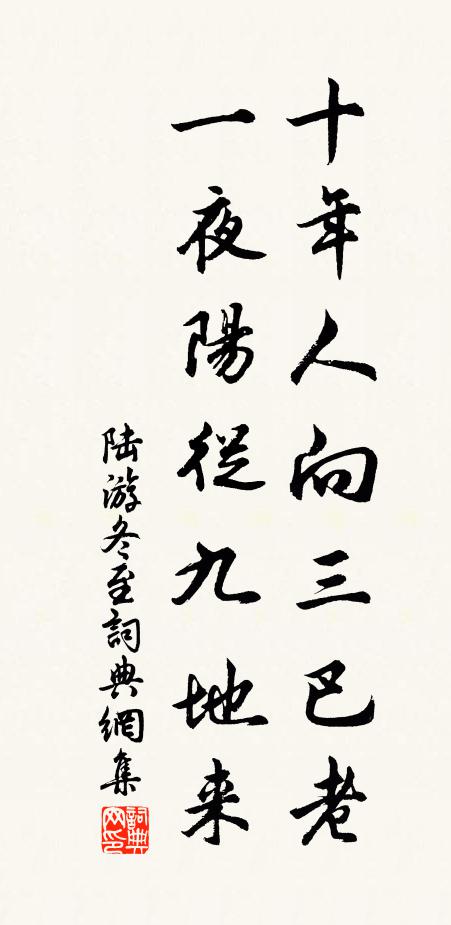 十年人向三巴老
一夜陽從九地来
陆游冬至詞典網集
詞典
网印